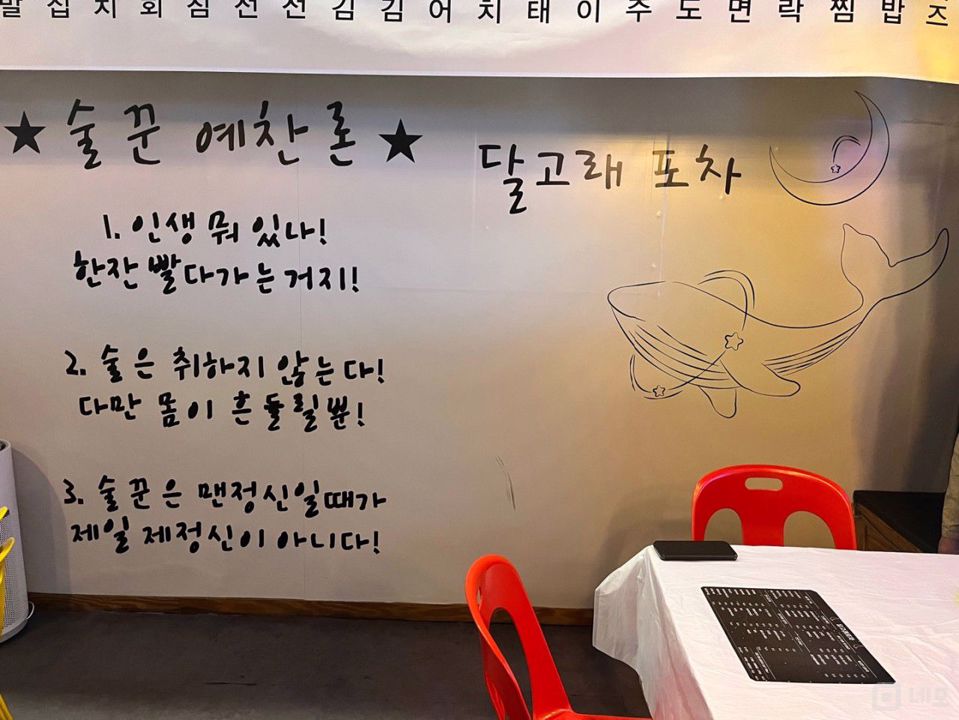 발 십 지 회 심 선 선 김 김 어 치 태 이 주 도 면 락 찜 밥 즈
★ 술꾼 예찬론 ★
달고래 포차
1. 인생 뭐 있나!
한잔 빨다가는거지!
2. 술은 취하지 않는다!
다만 몸이 흔들릴뿐!
3. 술꾼은 맨정신일때가
제일 제정신이 아니다!
네모